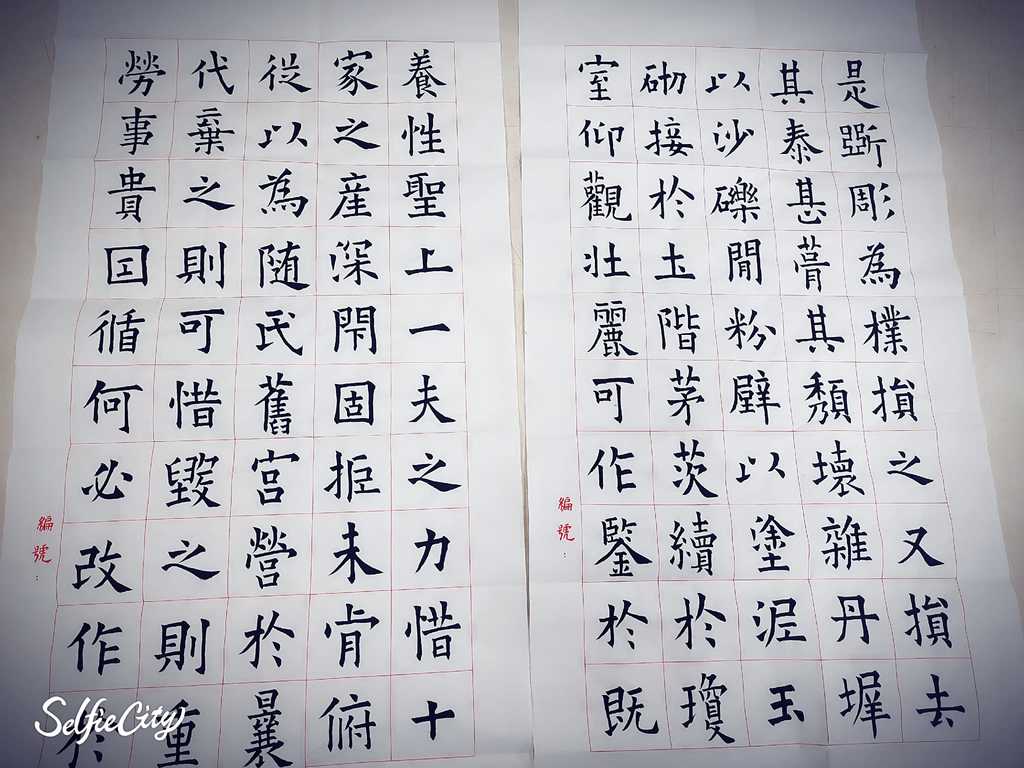 養性聖上一夫之力惜十
家之産深閇固拒未肯俯
從以為随氏舊宮營於曩
代棄之則可惜毀之則重
勞事貴因循何必改作於
編號:
是斲彫為樸損之又損去
其泰甚葺其頹壞雜丹墀
以沙礫閒粉壁以塗泥玉
砌接於土階茅茨續於瓊
室仰觀壯麗可作鑒於既
編號:
SelfieCity